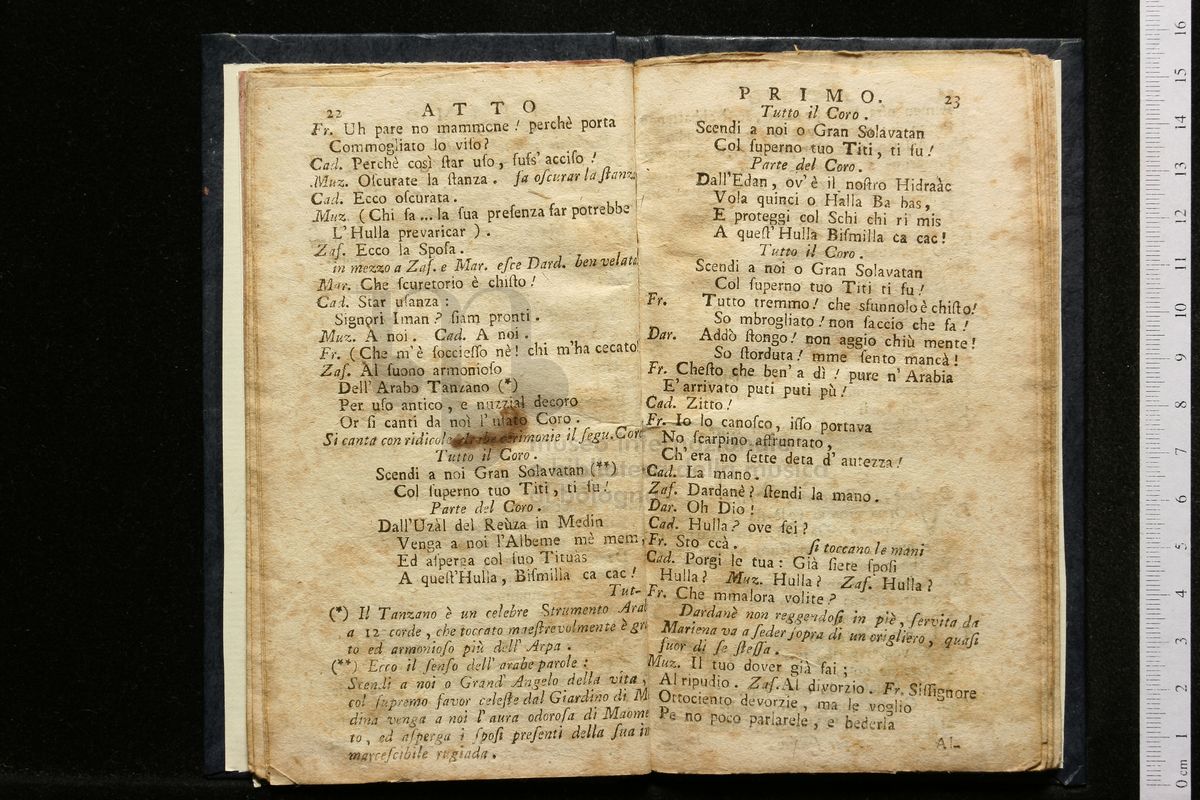 22 ATTO
Fr. Uh pare no mammone! perchè porta
Commogliato lo viſo?
Cad. Perchè così ſtar uſo, ſuſs' acciſo!
Muz. Oſcurate la ſtanza. fa oſcurar la ſtanza
Cad. Ecco oſcurata.
Muz. (Chi ſa... la ſua preſenza far potrebbe
L'Hulla prevaricar).
Zaf. Ecco la Spoſa.
in mezzo a Zaf. e Mar. eſce Dard. ben velata
Mar. Che ſcuretorio è chiſto!
Cad. Star uſanza:
Signori Iman? ſiam pronti.
Muz. A noi. Cad. A noi.
Fr. (Che m'è ſoccieſſo nè! chi m'ha cecato!
Zaf. Al ſuono armonioſo
Dell'Arabo Tanzano (*)
Per uſo antico, e nuzzial decoro
Or ſi canti da noi l'uſato Coro.
Si canta con ridicole cerimonie il ſegu. Coro
Tutto il Coro.
Scendi a noi Gran Solavatan (**)
Col ſuperno tuo Titi, ti ſu!
Parte del Coro.
Dall'Uzàl del Reùza in Medin
Venga a noi l'Albeme mè mem,
Ed aſperga col ſuo Tituas
A queſt'Hulla, Biſmilla ca cac!
Tut-
(*) Il Tanzano è un celebre Strumento Ara
a 12 corde, che toccato maeſtrevolmente è gra
to ed armonioſo più dell'Arpa.
(**) Ecco il ſenſo dell'arabe parole:
Scendi a noi o Grand'Angelo della vita,
col ſupremo favor celeſte dal Giardino di M
dina venga a noi l'aura odoroſa di Maome
to, ed aſperga i ſpoſi preſenti della ſua im
marceſcibile rugiada.
PRIMO. 23
Tutto il Coro.
Scendi a noi o Gran Solavatan
Col ſuperno tuo Titi, ti ſu!
Parte del Coro.
Dall'Edan, ov'è il noſtro Hidraàc
Vola quinci o Halla Ba bas,
E proteggi col Schi chi ri mis
A queſt'Hulla Biſmilla ca cac!
Tutto il Coro.
Scendi a noi o Gran Solavatan
Col ſuperno tuo Titi ti ſu!
Fr. Tutto tremmo! che sfunnolo è chiſto!
So mbrogliato! non ſaccio che fa!
Dar. Addò ſtongo! non aggio chiù mente!
So ſtorduta! mme ſento mancà!
Fr. Cheſto che ben'a dì! pure n'Arabia
E'arrivato puti puti pù!
Cad. Zitto!
Fr. Io lo canoſco, iſſo portava
No ſcarpino aſfruntato,
Ch'era no ſette deta d'autezza!
Cad. La mano.
Zaf. Dardanè? ſtendi la mano.
Dar. Oh Dio!
Cad. Hulla? ove ſei?
Fr. Sto ccà. ſi toccano le mani
Cad. Porgi le tua: Già ſiete ſpoſi
Hulla? Muz. Hulla? Zaf. Hulla?
Fr. Che mmalora volite?
Dardanè non reggendoſi in piè, ſervita da
Mariena va a ſeder ſopra di un origliero, quaſi
fuor di ſe ſteſſa.
Muz. Il tuo dover già fai;
Al ripudio. Zaf. Al divorzio. Fr. Siſſignore
Ottociento devorzie, ma le voglio
Pe no poco parlarele, e bederla
Al-
museo internazionale
e biblioteca della musica
di bologna
0 cm 1 2 3 4 5 6 7 8 9 10 11 12 13 14 15 16